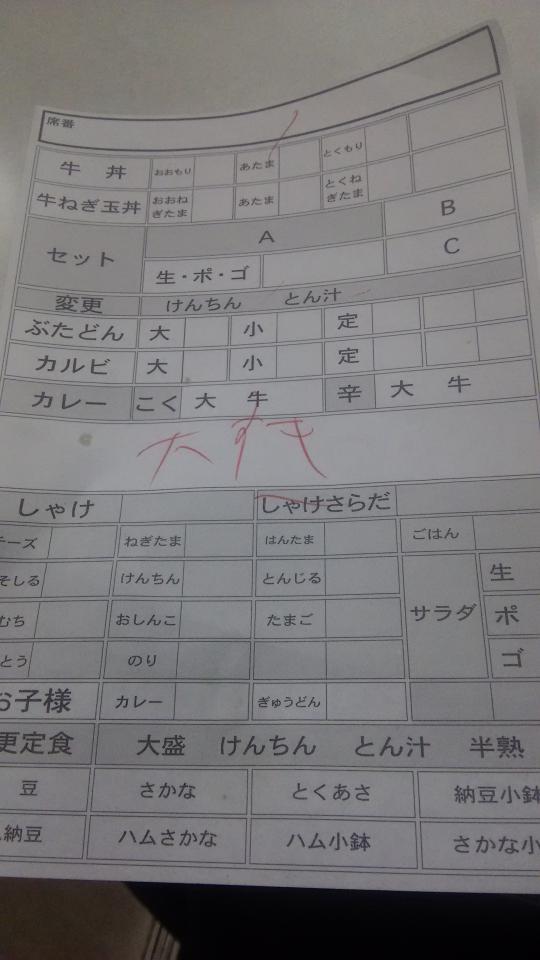 席番
牛 丼 おおもり あたま とくもり
牛ねぎ玉丼 おおねぎたま あたま とくねぎたま
セット A B
生・ポ・ゴ C
変更 けんちん とん汁
ぶたどん 大 小 定
カルビ 大 小 定
カレー こく 大 牛 辛 大 牛
しゃけ しゃけさらだ
チーズ ねぎたま はんたま ごはん
そしる けんちん とんじる サラダ 生
むち おしんこ たまご ポ
とう のり ゴ
お子様 カレー ぎゅうどん
更定食 大盛 けんちん とん汁 半熟
豆 さかな とくあさ 納豆小鉢
納豆 ハムさかな ハム小鉢 さかな小